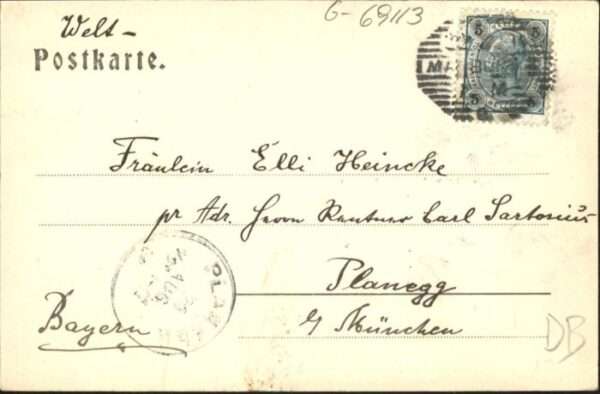 G-69113
Welt-
Postkarte.
5 5
Fräulein Elli Heincke
pr Adr. Herrn Rentner Carl Sartorius
Planegg
b/ München
Bayern
PLANEGG
AUG
DB